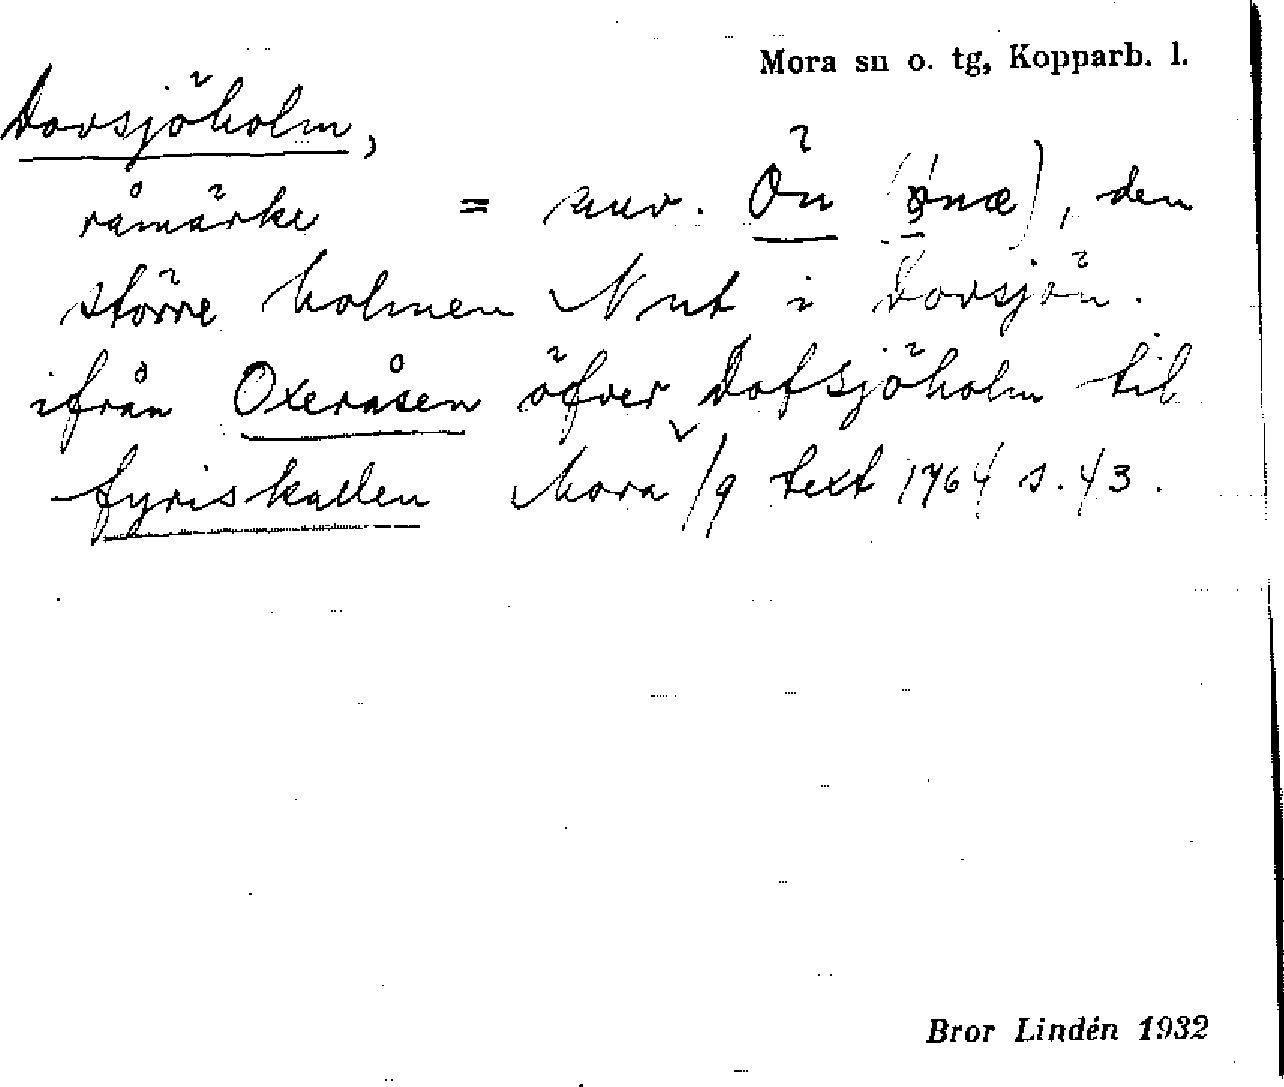 Mora sn o. tg, Kopparb. l.
Dovsjöholm,
råmärke = nuv. Ön (ønæ), den
större holmen Nut i Dovsjön.
ifrån Oxeråsen öfver Dofsjöholm til
fyriskallen Mora 1/9 text 1764 s. 43.
Bror Lindén 1932